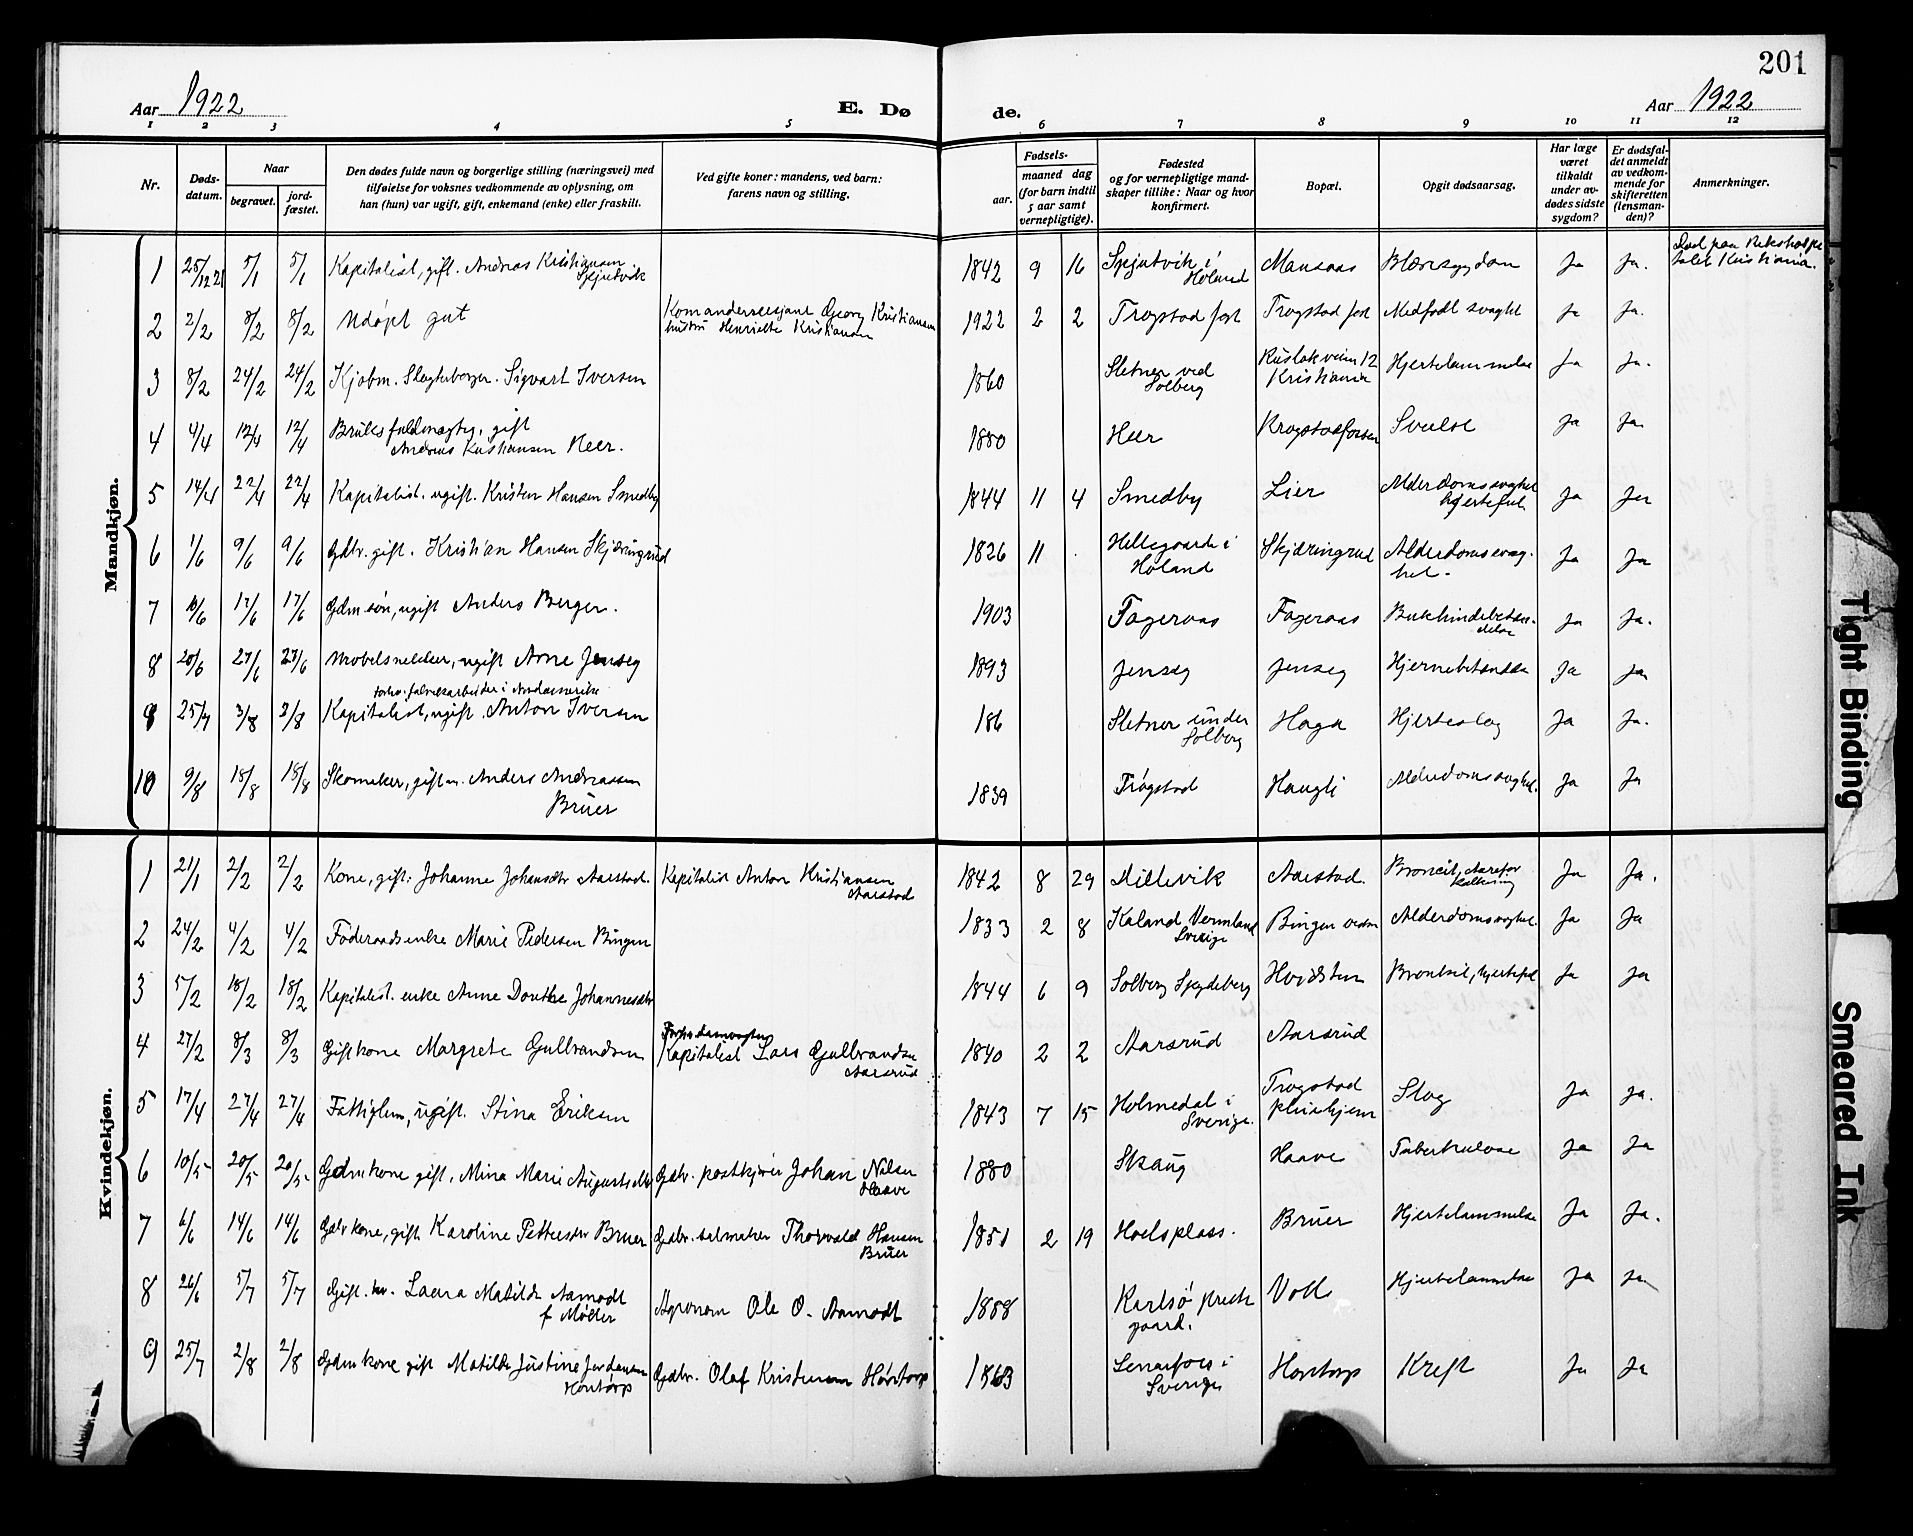 201
Aar 1922
E. Dø de.
Aar 1922
1 2 3 4 5 6 7 8 9 10 11 12
Nr.
Døds-
datum.
Naar
begravet.
jord-
fæstet.
Den dødes fulde navn og borgerlige stilling (næringsvei) med
tilføielse for voksnes vedkommende av oplysning, om
han (hun) var ugift, gift, enkemand (enke) eller fraskilt.
Ved gifte koner: mandens, ved barn:
farens navn og stilling.
Fødsels-
aar.
maaned dag
(for barn indtil
5 aar samt
vernepligtige).
Fødested
og for vernepligtige mand-
skaper tillike: Naar og hvor
konfirmert.
Bopæl.
Opgit dødsaarsag.
Har læge
været
tilkaldt
under av-
dødes sidste
sygdom?
Er dødsfal-
det anmeldt
av vedkom-
mende for
skifteretten
(lensman-
den)?
Anmerkninger.
Mandkjøn.
1 25/12 21 5/1 5/1 Kapitalist, gift. Andreas Kristiansen
Spjutvik
1842 9 16 Spjutvik i
Høland
Mansaas Blæresygdom Ja Ja.
Død paa Rikshospi
talet Kristiania.
2 2/2 8/2 8/2 Udøpt gut
Komandersersjant Georg Kristiansen
hustru Henriette Kristiansen
1922 2 2 Trøgstad fort Trøgstad fort Medfødt svaghet Ja Ja.
3 8/2 24/2 24/2 Kjøbm. Sigvart Iversen
1860 Sletner ved
Solberg
Ruseløkveien 12
Kristiania
Hjertelammelse Ja Ja.
4 4/4 12/4 12/4 Bruksfuldmægtig, gift
Andreas Kristiansen Heer.
1880 Heer Krogstadfossen Svulst Ja Ja
5 14/4 22/4 22/4 Kapitalist. ugift. Kristen Hansen Smedby
1844 11 4 Smedby Lier Alderdomssvaghet
hjertefeil
Ja Ja
6 1/6 9/6 9/6 Gdbr. gift. Kristian Hansen Skjæringrud
1826 11 Hellegaarde i
Høland
Skjæringrud Alderdomssvag-
het.
Ja Ja
7 10/6 17/6 17/6 Gdm. søn, ugift Anders Berger.
1903 Fageraas Fageraas Bukhindebetæn-
delse
Ja Ja.
8 20/6 27/6 27/6 Møbelsnekker, ugift Arne Jenseg
1893 Jenseg Jenseg Hjernebetændelse Ja Ja
forhv. fabriksarbeider i Nordamerika
9 25/7 3/8 3/8 Kapitalist, ugift. Anton Iversen
186 Sletner under
Solberg
Haga Hjerteslag Ja Ja.
10 9/8 18/8 18/8 Skomaker, gift m. Anders Andreassen
Bruer
1839 Trøgstad Haugli Alderdomssvaghet. Ja Ja
Kvindekjøn.
1 21/1 2/2 2/2 Kone, gift. Johanne Johansdtr Aarstad.
Kapitalist Anton Kristiansen
Aarstad
1842 8 29 Lillevik Aarstad. Bronkit, Aarefor
kalkning
Ja Ja.
2 24/2 4/2 4/2 Føderaadsenke Marie Pedersen Bingen
1833 2 8 Kaland Vermland
Sverige
Bingen Alderdomssvaghet. Ja Ja
3 5/2 18/2 18/2 Kapitalist. enke Anne Dorthea Johannesdtr
1844 6 9 Solberg Spydeberg Hvidsten Bronkit, hjertefeil Ja Ja
4 27/2 8/3 8/3 Gift kone Margrete Gulbrandsen
Kapitalist Lars Gulbrandsen
Aarsrud
1840 2 2 Aarsrud Aarsrud
5 17/4 27/4 27/4 Fattiglem, ugift. Stina Eriksen
1843 7 15 Holmedal i
Sverige.
Trøgstad
pleiehjem
Slag Ja Ja.
6 10/5 20/5 20/5 Gdmkone gift, Mina Marie Augustsdtr
Gdbr. postkjører Johan Nilsen
Haave
1880 Skaug Haave Tuberkulose Ja Ja
7 6/6 14/6 14/6 Gdbr kone, gift Karoline Pettersdtr Bruer
Gdbr. salmaker Thorvald Hansen
Bruer
1851 2 19 Hoelsplass. Bruer Hjertelammelse Ja Ja.
8 26/6 5/7 5/7 Gift. kv. Laura Matilde Aamodt
f Møller
Agronom Ole O. Aamodt
1888 Karlsø preste
gaard.
Voll Hjertelammelse Ja Ja
9 25/7 2/8 2/8 Gdmkone gift Matilde Justine Jordansen
Hontorp
Gdbr. Olaf Kristiansen Hontorp
1863 Lenarfors i
Sverige
Hontorp Kreft Ja Ja
Tight Binding
Smeared Ink